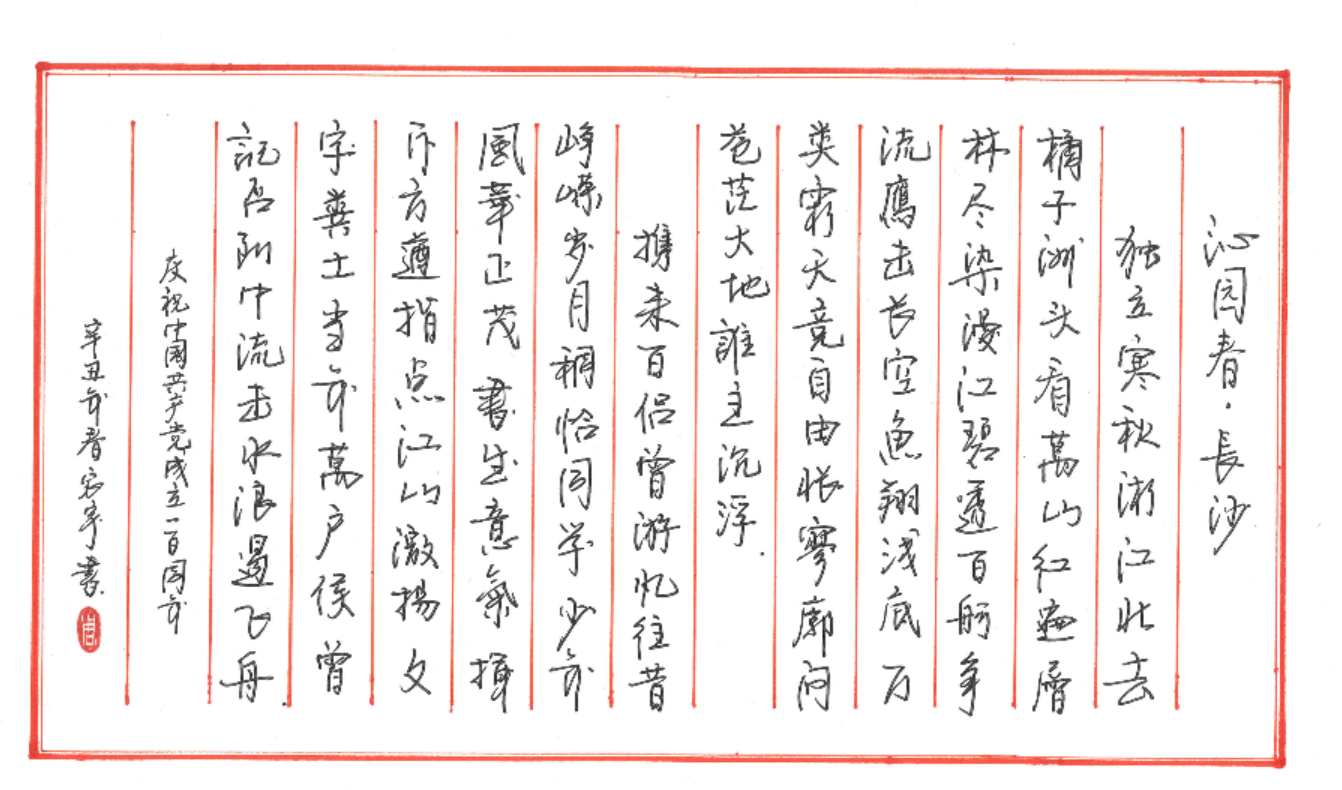 沁园春·長沙
独立寒秋湘江北去
橘子洲头看萬山红遍層
林尽染漫江碧透百舸争
流鷹击长空魚翔浅底万
类霜天竞自由怅寥廓问
苍茫大地誰主沉浮.
携来百侣曾游忆往昔
峥嵘岁月稠恰同学少年
風華正茂書生意氣揮
斥方遒指点江山激揚文
字粪土当年萬户侯曾
記否到中流击水浪遏飞舟.
庆祝中国共产党成立一百周年
辛丑年春書